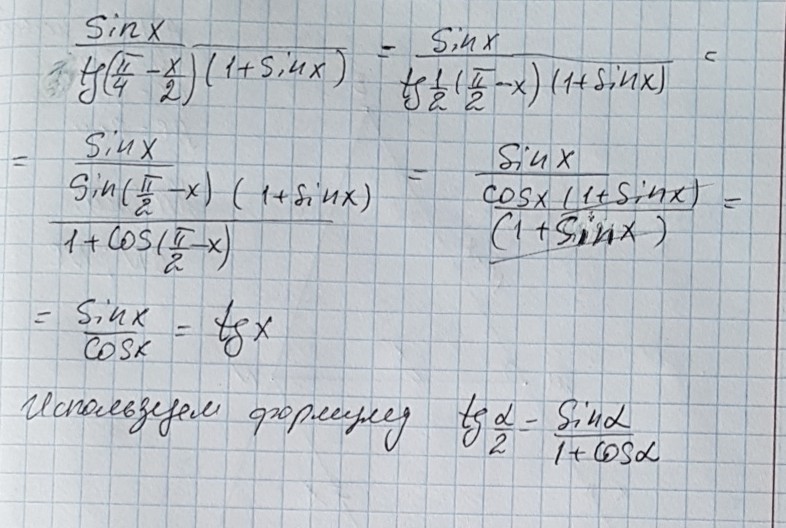 sin x / tg(π/4 - x/2) (1 + sin x) = sin x / tg 1/2 (π/2 - x) (1 + sin x) =
= sin x / sin(π/2 - x) (1 + sin x) / 1 + cos(π/2 - x) = sin x / cos x (1 + sin x) / (1 + sin x) =
= sin x / cos x = tg x
Используем формулу tg α/2 = sin α / 1 + cos α